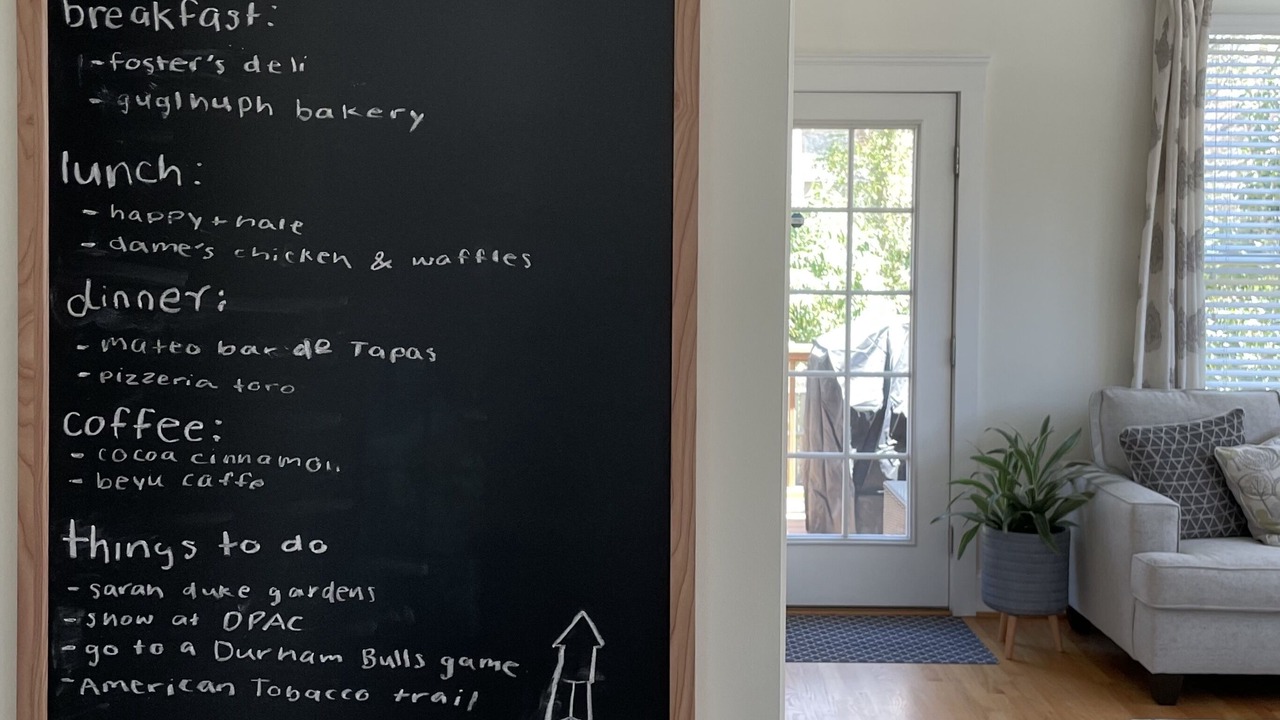 breakfast:
- foster's deli
- guglhuph bakery
lunch:
- happy + hale
- dame's chicken & waffles
dinner:
- mateo bar de Tapas
- pizzeria toro
coffee:
- cocoa cinnamon
- beyu caffe
things to do
- sarah duke gardens
- show at DPAC
- go to a Durham Bulls game
- American Tobacco trail